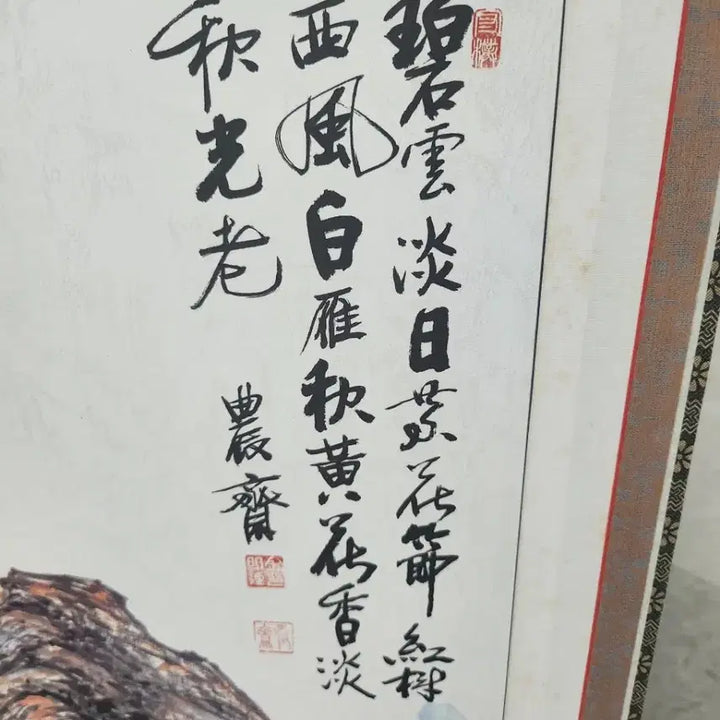 碧雲淡日菊花節紅樹
西風白雁秋黃花香淡
秋光老
農齋